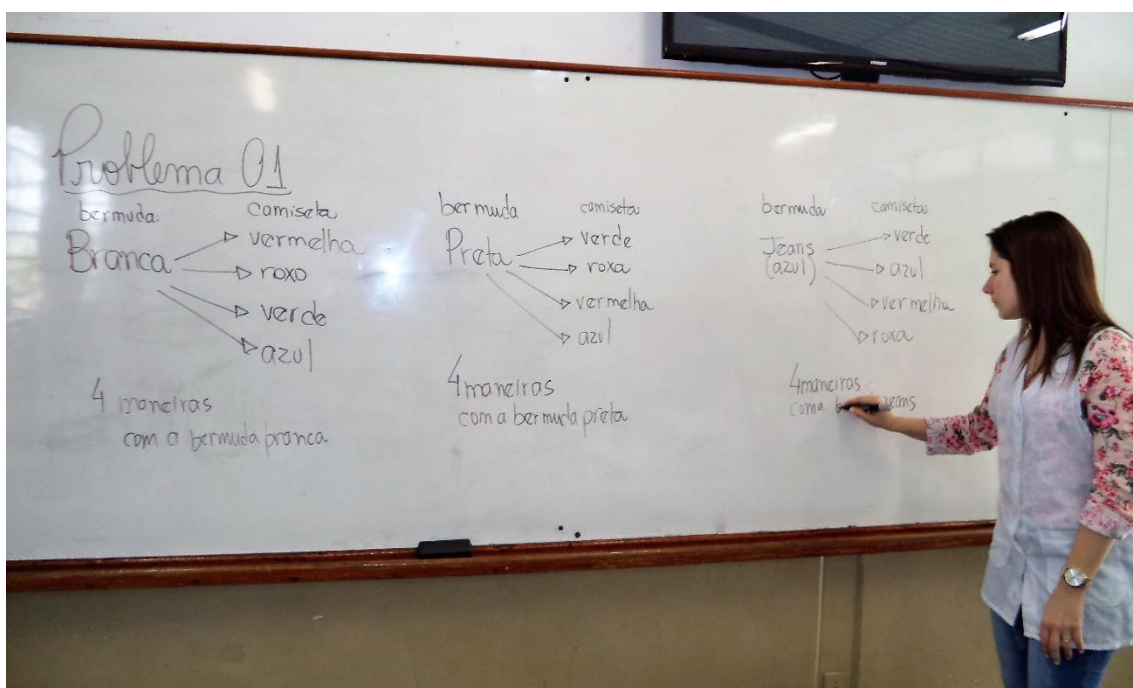 Problema 01
bermuda. camiseta
Branca vermelha
roxo
verde
azul
4 maneiras
com a bermuda branca
bermuda camiseta
Preta verde
roxa
vermelha
azul
4 maneiras
com a bermuda preta
bermuda camiseta
Jeans verde
(azul) azul
vermelha
roxa
4 maneiras
com a jeans